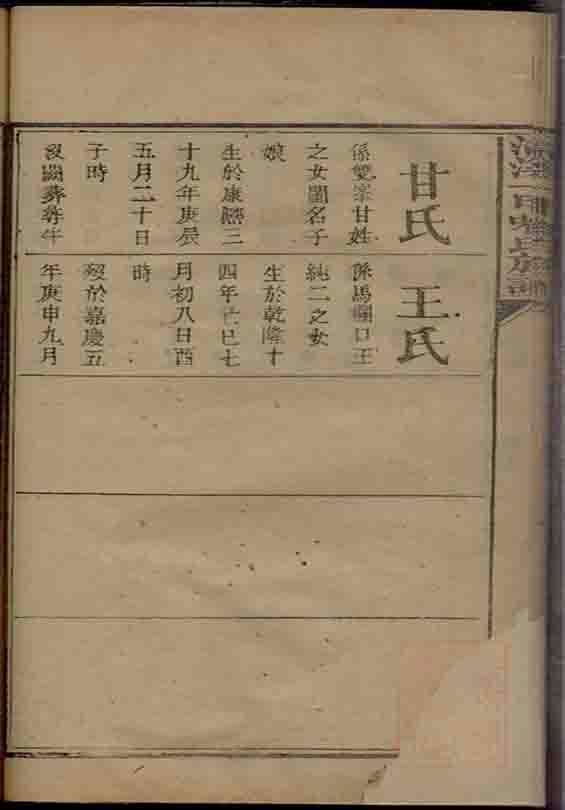 甘氏
係雙峯甘姓
之女閨名子
娘
生於康熙三
十九年庚辰
五月二十日
子時
沒闕葬犇牛
王氏
係馬口王
純二之女
生於乾隆十
四年己巳七
月初八日酉
時
歿於嘉慶五
年庚申九月